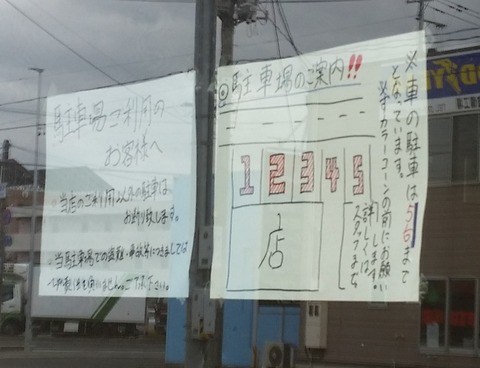 駐車場ご利用の
お客様へ
・当店のご利用以外の駐車は、
お断り致します。
・当駐車場での盗難・事故等につきましては
◎駐車場のご案内!!
1 2 3 4 5
店
※車の駐車は5台まで
となっています。
必ずカラーコーンの前にお願い
します。
詳しくは
スタッフまで